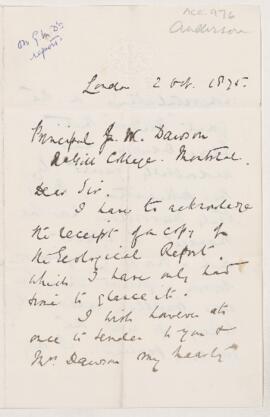 Acc. 976
Anderson
on G.M.D's
reports
London 2 Oct. 1875.
Principal J. W. Dawson
McGill College. Montreal.
Dear Sir.
I have to acknowledge
the receipt of a copy of
the Geological Report.
which I have only had
time to glance it.
I wish however at
once to tender to you &
Mrs Dawson my hearty